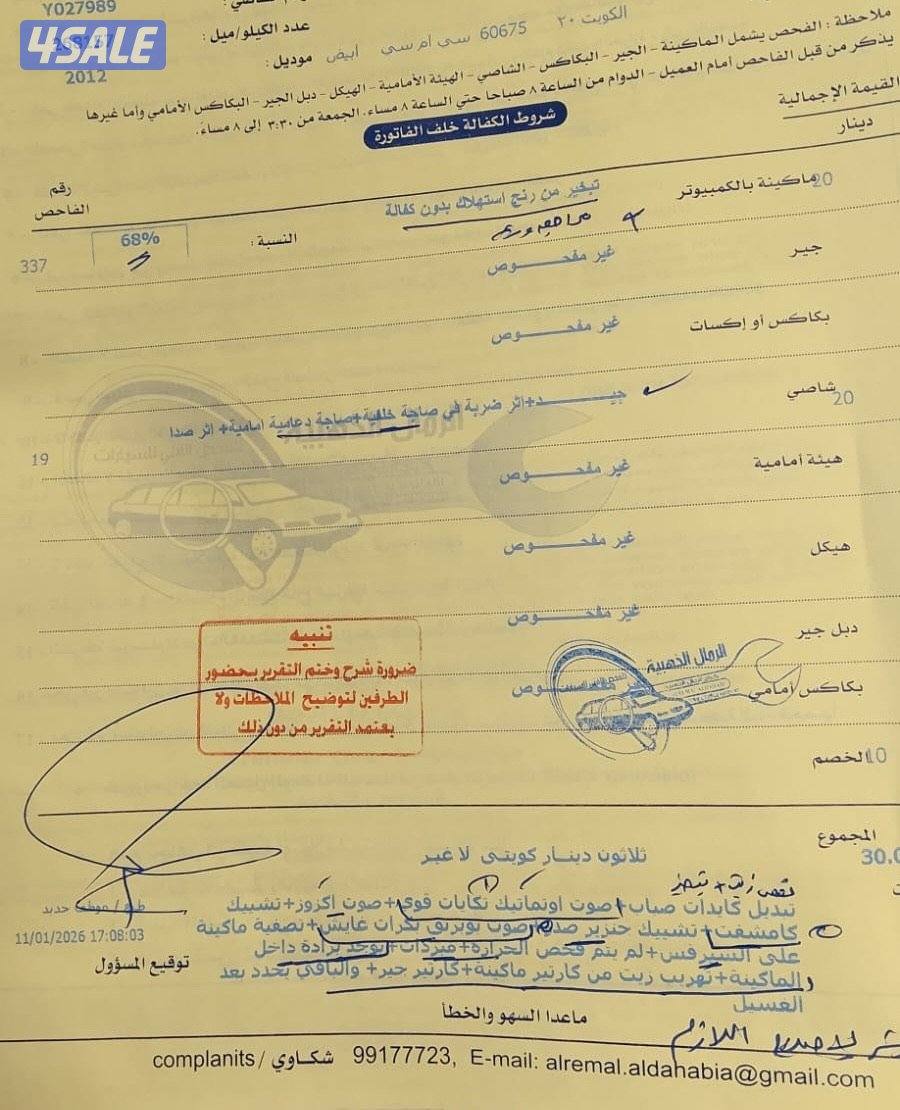 Y027989
4SALE
عدد الكيلو/ميل :
الكويت ٢٠ 60675 سي ام سي ابيض
موديل :
2012
ملاحظة : الفحص يشمل الماكينة - الجير - البكاكس - الشاصي - الهيئة الأمامية - الهيكل - دبل الجير - البكاكس الأمامي وأما غيرها
يذكر من قبل الفاحص أمام العميل - الدوام من الساعة ٨ صباحا حتي الساعة ٨ مساء. الجمعة من ٣:٣٠ إلى ٨ مساءً.
شروط الكفالة خلف الفاتورة
القيمة الإجمالية
دينار
رقم الفاحص
20 ماكينة بالكمبيوتر تبخير من رنج استهلاك بدون كفالة
النسبة : 68% 337
جير غير مفحوص
بكاكس أو إكسات غير مفحوص
20 شاصي جيد+اثر ضربة في صاجة خلفية+صاجة دعامية امامية+ اثر صدا 19
هيئة أمامية غير مفحوص
هيكل غير مفحوص
دبل جير غير مفحوص
بكاكس أمامي غير مفحوص
الرمال الذهبية
تنبيه
ضرورة شرح وختم التقرير بحضور
الطرفين لتوضيح الملاحظات ولا
يعتمد التقرير من دون ذلك
10 الخصم
المجموع
30.0 ثلاثون دينار كويتي لا غير
تبديل كايدات صباب+صوت اوتماتيك تكايات قوي+صوت اكزوز+تشبيك
كامشفت+تشبيك جنزير صدر+صوت توبريق بكرات عايش+تصفية ماكينة
على السيرفس+لم يتم فحص الحرارة+مبردات+يوجد برادة داخل
الماكينة+تهريب زيت من كارتير ماكينة+كارتير جير+ والباقي يحدد بعد
الغسيل
11/01/2026 17:08:03
توقيع المسؤول
ماعدا السهو والخطأ
complanits / شكاوي 99177723, E-mail: alremal.aldahabia@gmail.com